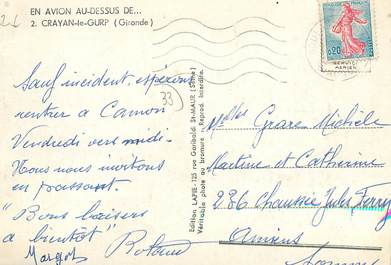 EN AVION AU-DESSUS DE...
2. CRAYAN-le-GURP (Gironde)
Sauf incident, espérons
rentrer à Camon
Vendredi vers midi.
Nous nous invitons
en passant.
"Bons baisers
à bientôt"
Margot Roland
33
Edition LAPIE - 125 rue Garibaldi St-MAUR (Seine)
Véritable photo au bromure - Reprod. Interdite.
0,20
POSTES
Grare Michèle
Martine et Catherine
286 Chaussée Jules Ferry
Amiens
Somme